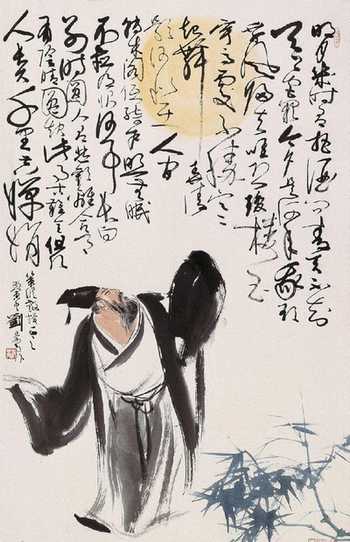 明月幾時有把酒問青天不知
天上宮闕今夕是何年我欲
乘風歸去唯恐瓊樓玉
宇高處不勝寒
起舞弄清
影何似在人間
轉朱閣低綺戶照無眠
不應有恨何事長向
別時圓人有悲歡離合月
有陰晴圓缺此事古難全但願
人長久千里共嬋娟
劉